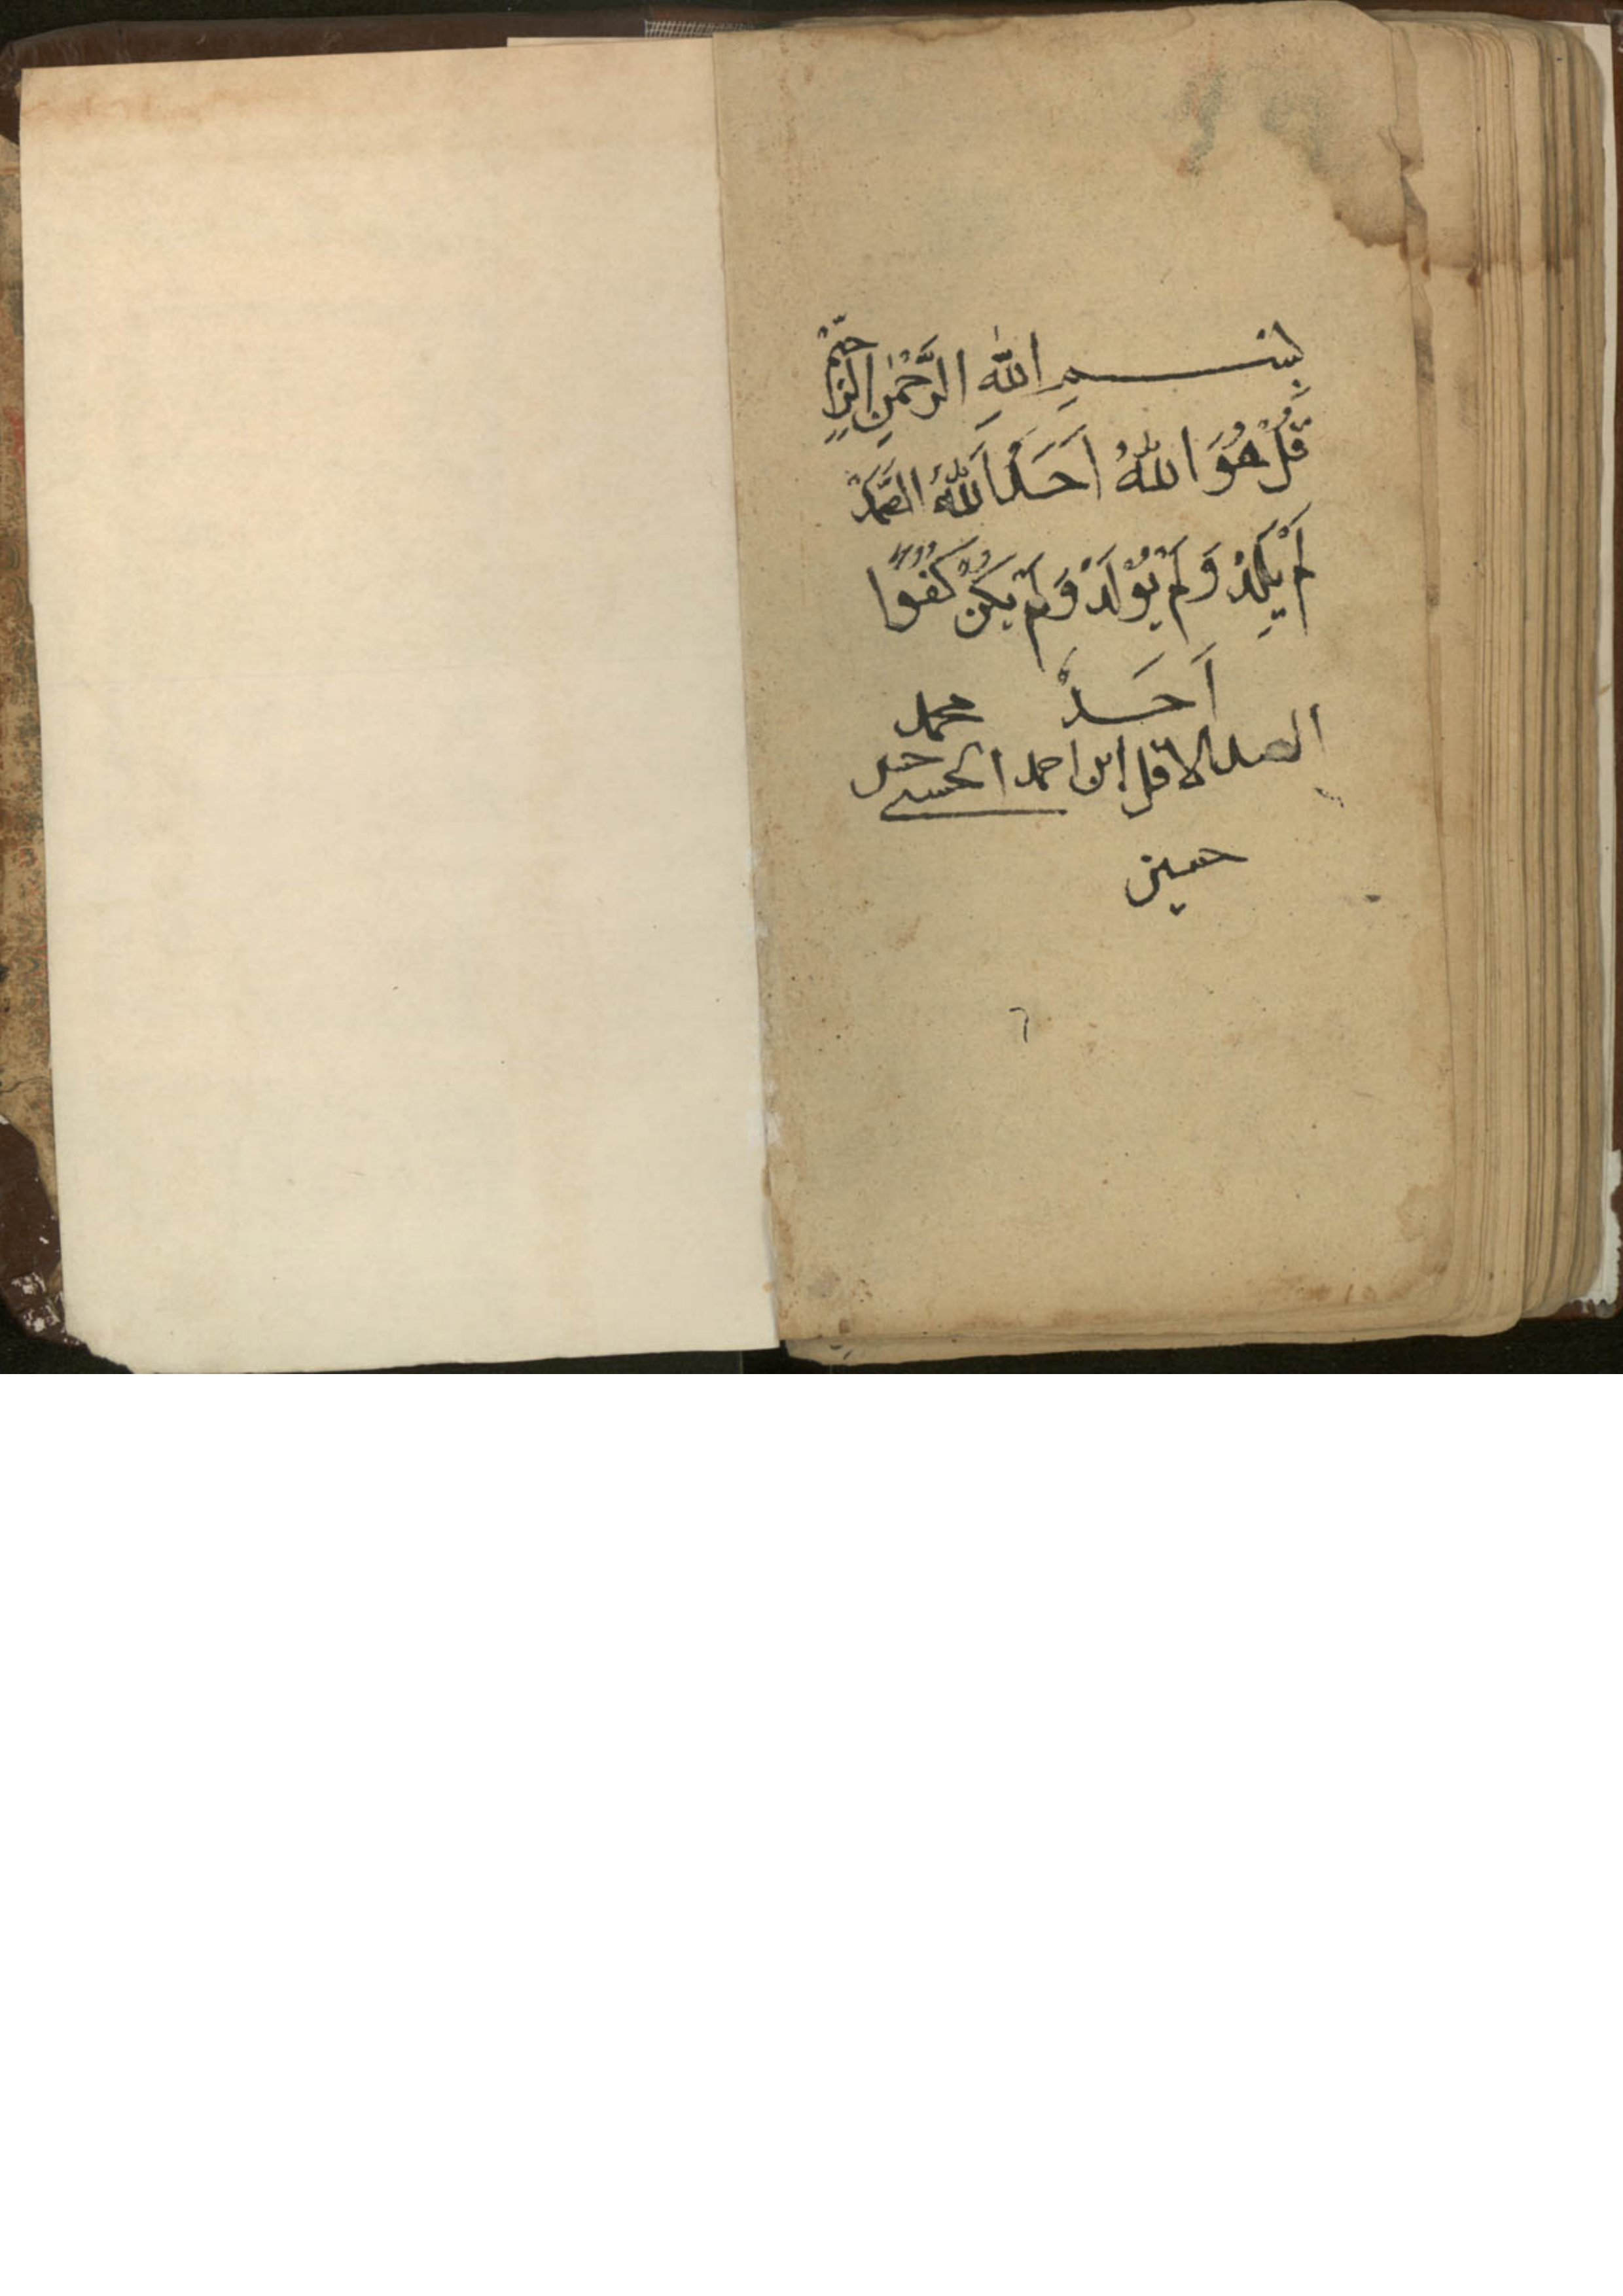 بِسْمِ اللهِ الرَّحْمٰنِ الرَّحِيْمِ
قُلْ هُوَ اللهُ اَحَدٌ اَللهُ الصَّمَدُ
لَمْ يَلِدْ وَلَمْ يُوْلَدْ وَلَمْ يَكُنْ كُفُوًا
اَحَدٌ محمد
الاقل ابن احمد الحسني
حسين